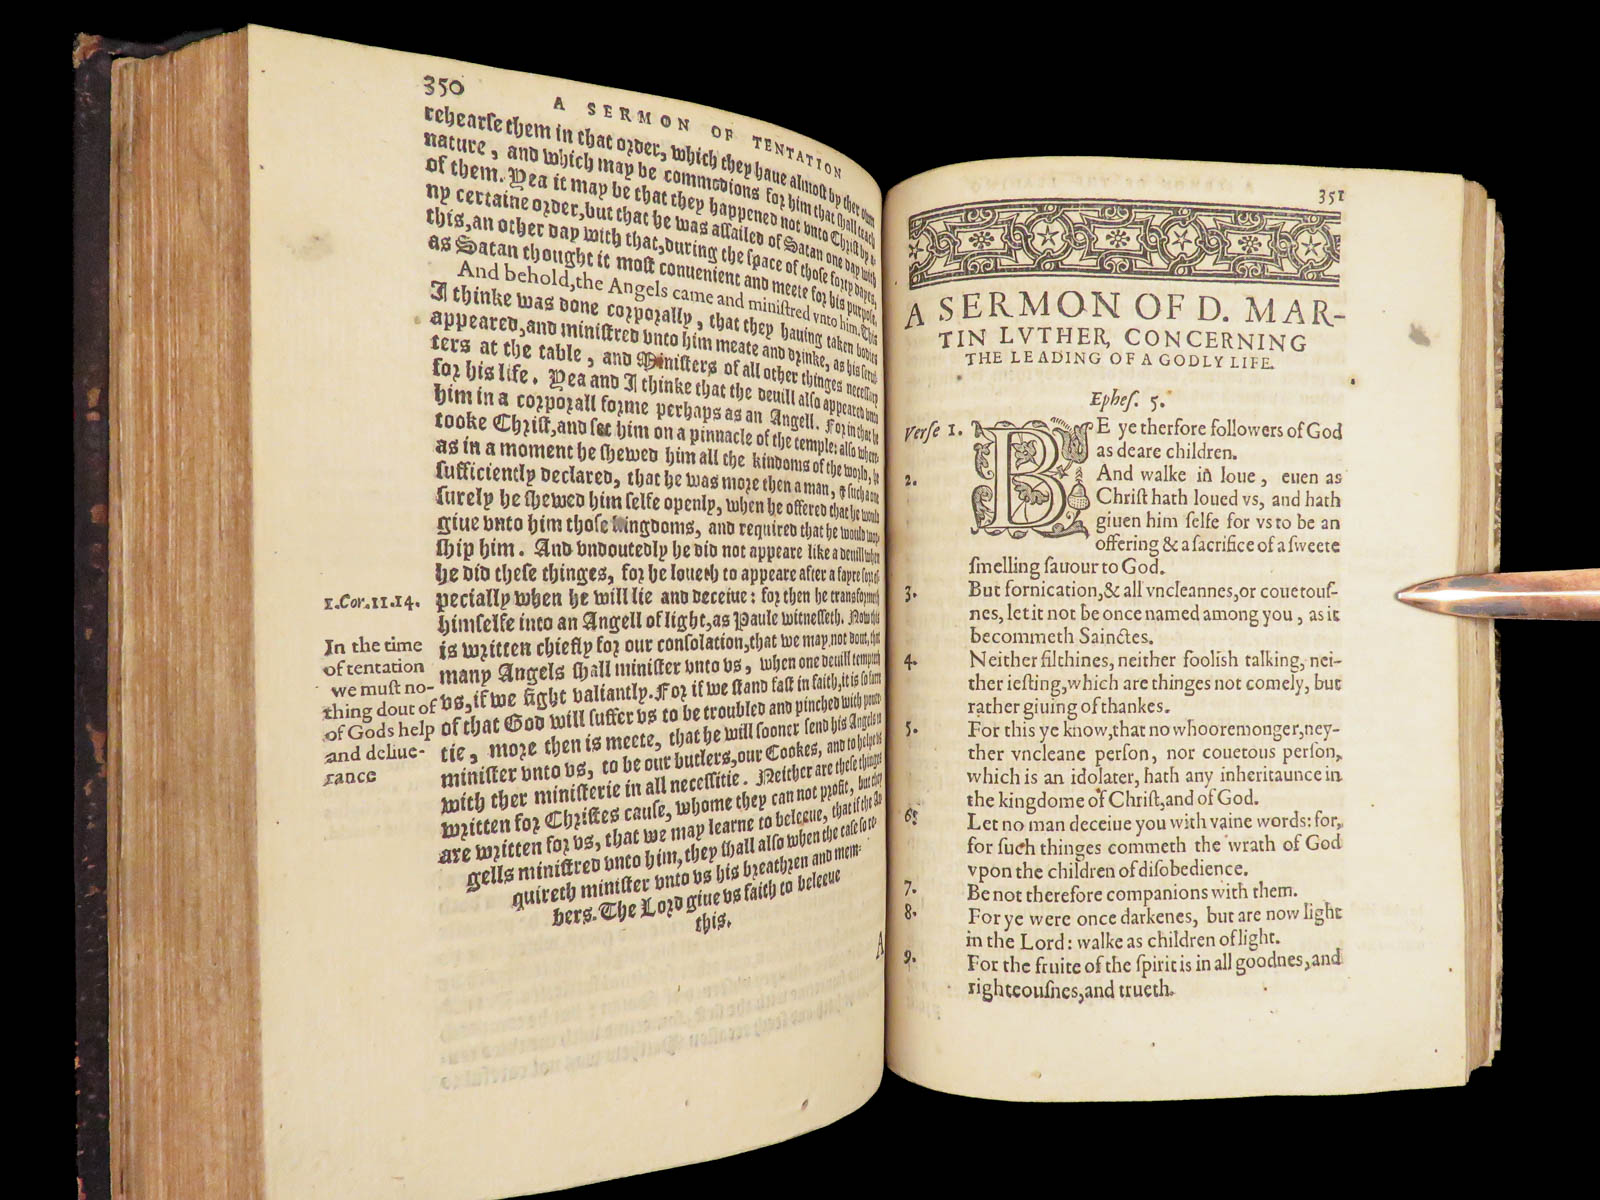 350
A SERMON OF TENTATION
rehearſe them in that order, which they haue almoſt by their own
nature, and which may be commodious for him that ſhall teach
of them. Yea it may be that they happened not vnto Chriſt by a-
ny certaine order, but that he was aſſailed of Satan one day with
this, an other day with that, during the ſpace of thoſe forty dayes,
as Satan thought it moſt conuenient and meete for his purpoſe.
And behold, the Angels came and miniſtred vnto him. This
I thinke was done corporally, that they hauing taken bodies
appeared, and miniſtred vnto him meate and drinke, as his ſerui-
ters at the table, and Miniſters of all other thinges neceſſary
for his life. Yea and I thinke that the deuill alſo appeared vnto
him in a corporall forme perhaps as an Angell. For in that he
tooke Chriſt, and ſet him on a pinnacle of the temple: alſo when
as in a moment he ſhewed him all the kindoms of the world, he
ſufficiently declared, that he was more then a man, & ſuch a one
ſurely he ſhewed him ſelfe openly, when he offered that he would
giue vnto him thoſe kingdoms, and required that he would wor-
ſhip him. And vndoutedly he did not appeare like a deuill when
he did theſe thinges, for he loueth to appeare after a fayre ſort eſ-
1.Cor.11.14. pecially when he will lie and deceiue: for then he transformeth
himſelfe into an Angell of light, as Paule witneſſeth. Now this
In the time is written chiefly for our conſolation, that we may not dout, that
of tentation many Angels ſhall miniſter vnto vs, when one deuill tempteth
we muſt no- vs, if we fight valiantly. For if we ſtand faſt in faith, it is ſo farre
thing dout of of that God will ſuffer vs to be troubled and pinched with pouer-
of Gods help tie, more then is meete, that he will ſooner ſend his Angels to
and deliue- miniſter vnto vs, to be our butlers, our Cookes, and to helpe vs
rance with ther miniſterie in all neceſſitie. Neither are theſe thinges
written for Chriſtes cauſe, whome they can not profit, but they
are written for vs, that we may learne to beleeue, that if the An-
gells miniſtred vnto him, they ſhall alſo when the caſe ſo re-
quireth miniſter vnto vs his breathren and mem-
bers. The Lord giue vs faith to beleeue
this.
A
351
A SERMON OF D. MAR-
TIN LVTHER, CONCERNING
THE LEADING OF A GODLY LIFE.
Epheſ. 5.
Verſe 1. BE ye therfore followers of God
as deare children.
2. And walke in loue, euen as
Chriſt hath loued vs, and hath
giuen him ſelfe for vs to be an
offering & a ſacrifice of a ſweete
ſmelling ſauour to God.
3. But fornication, & all vncleannes, or couetouſ-
nes, let it not be once named among you, as it
becommeth Sainctes.
4. Neither filthines, neither fooliſh talking, nei-
ther ieſting, which are thinges not comely, but
rather giuing of thankes.
5. For this ye know, that no whooremonger, ney-
ther vncleane perſon, nor couetous perſon,
which is an idolater, hath any inheritaunce in
the kingdome of Chriſt, and of God.
6. Let no man deceiue you with vaine words: for,
for ſuch thinges commeth the wrath of God
vpon the children of diſobedience.
7. Be not therefore companions with them.
8. For ye were once darkenes, but are now light
in the Lord: walke as children of light.
9. For the fruite of the ſpirit is in all goodnes, and
righteouſnes, and trueth.